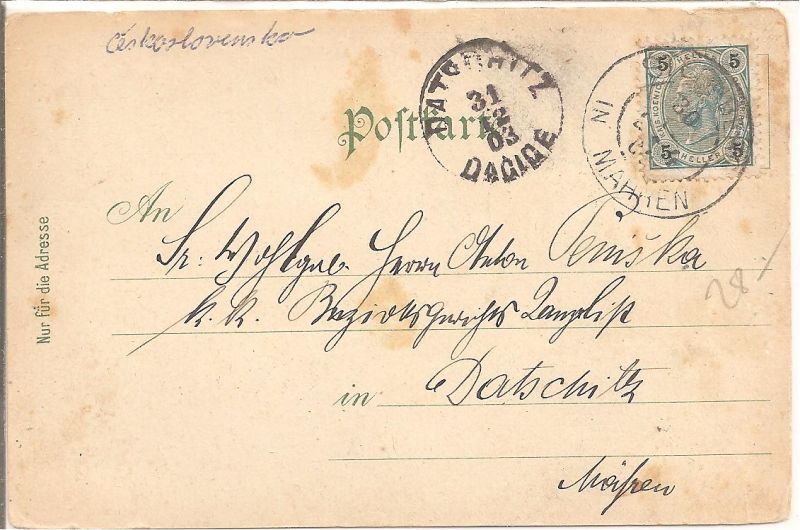 Československo
Postkarte
DATSCHITZ
31
12
03
DAČICE
5 HELLER 5
5 HELLER 5
IN MÄHREN
An
Sr. Wohlgeb. Herrn Anton
k. k. Bezirksgerichts Kanzlist
in Datschitz
Mähren
28.-
Nur für die Adresse